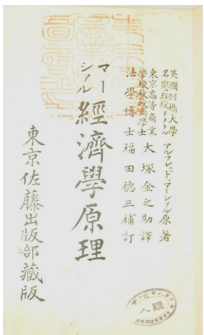 英國劍橋大學
名譽教授ドクトル アルフレッド・マーシァル原著
東京高等商業
學校教授商學士 大塚金之助譯
法學博士 福田徳三補訂
マーシァル 經濟學原理
東京佐藤出版部藏版